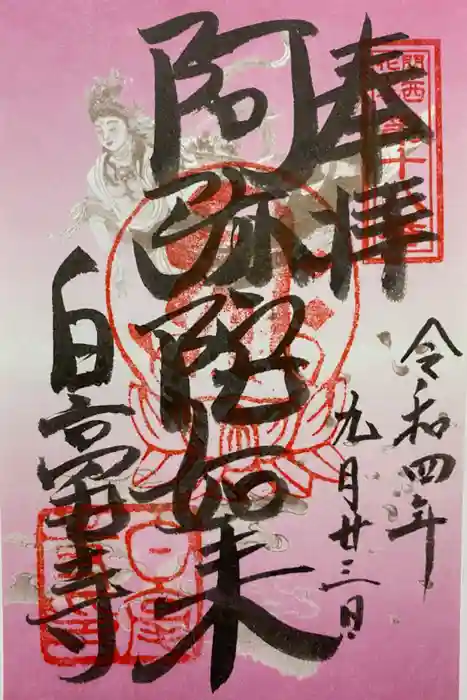 奉拝
令和四年
九月廿三日
阿弥陀如来
白毫寺
関西
花の寺